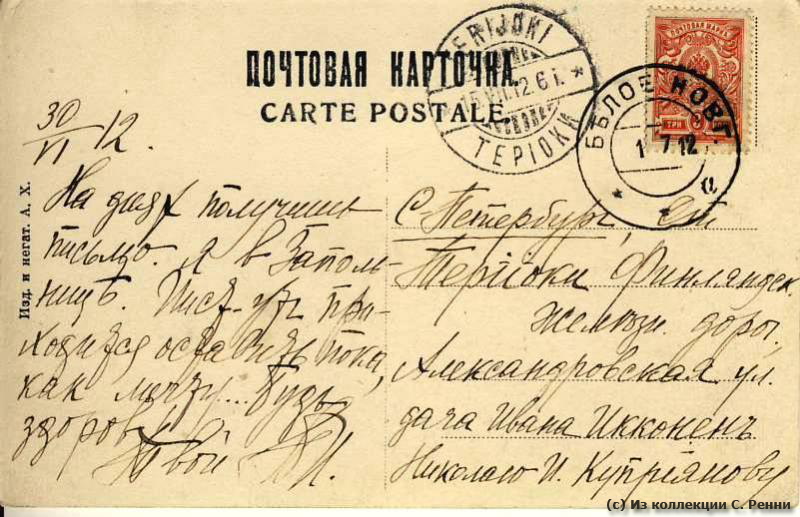 ПОЧТОВАЯ КАРТОЧКА.
CARTE POSTALE.
TERIJOKI
15.VII.12.6 i.
ТЕРІОКИ
ПОЧТОВАЯ МАРКА
ТРИ 3 КОП
БѢЛОЕ НОВГ.
1 7 12
а
Изд. и негат. А. Х.
30/VI 12.
На днях получишь
письмо. я в Заполь-
ницѣ. при-
ходится оставить пока,
как мечту... будь
здоров
Твой
С Петербург, Ст
Теріоки Финляндск.
желѣзн. дорог.
Александровская ул.
дача Ивана Икконенъ
Николаю И. Купріянову
(c) Из коллекции С. Ренни